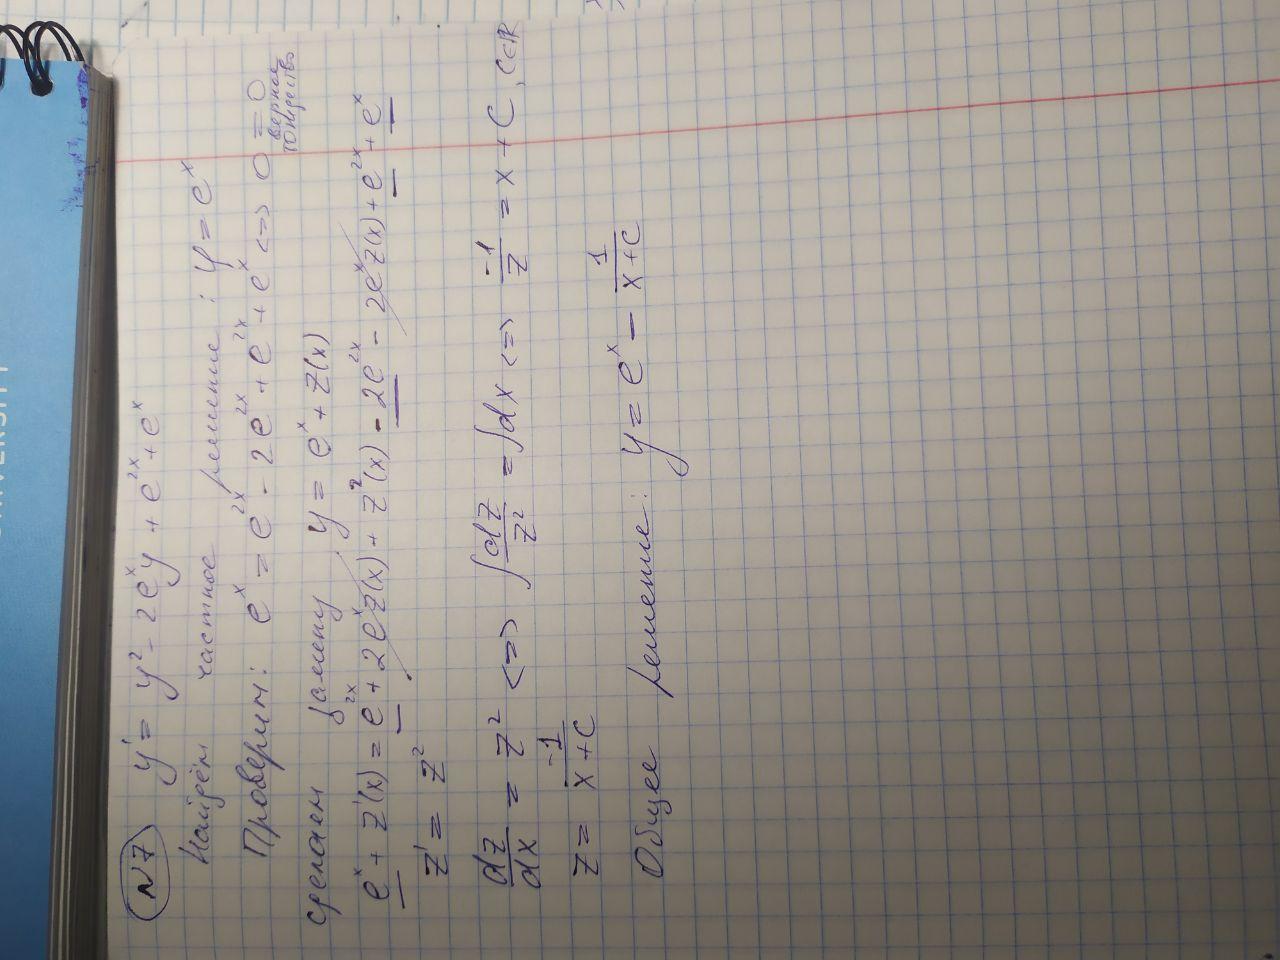 UNIVERSITY
N7 y' = y² - 2eˣy + e²ˣ + eˣ
Найдём частное решение: y = eˣ
Проверим: eˣ = e²ˣ - 2e²ˣ + e²ˣ + eˣ <=> 0 = 0
верное
тождество
сделаем замену y = eˣ + z(x)
eˣ + z'(x) = e²ˣ + 2eˣz(x) + z²(x) - 2e²ˣ - 2eˣz(x) + e²ˣ + eˣ
z' = z²
dz/dx = z² <=> ∫dz/z² = ∫dx <=> -1/z = x + C, C∈ℝ
z = -1/(x+C)
Общее решение: y = eˣ - 1/(x+C)